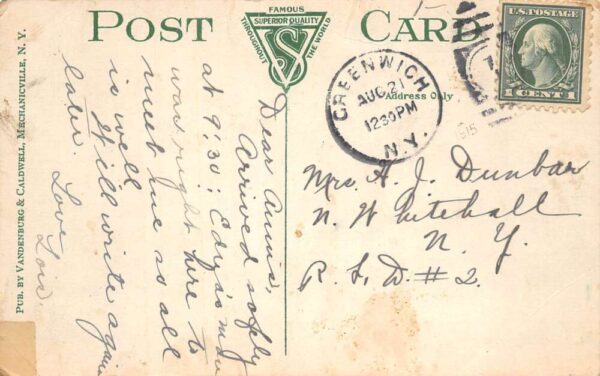 POST CARD
FAMOUS
SUPERIOR QUALITY
THROUGHOUT THE WORLD
VS
PUB. BY VANDENBURG & CALDWELL, MECHANICVILLE, N. Y.
Address Only
GREENWICH
AUG 21
1230PM
N.Y.
U.S. POSTAGE
1 CENT 1
Dear Annie,
Arrived safely
at 9:30:
was right here to
meet me so all
is well
Will write again
later. Love
Lois.
Mrs. A. J. Dunbar
N. Whitehall
N. Y.
R. F. D. #2.